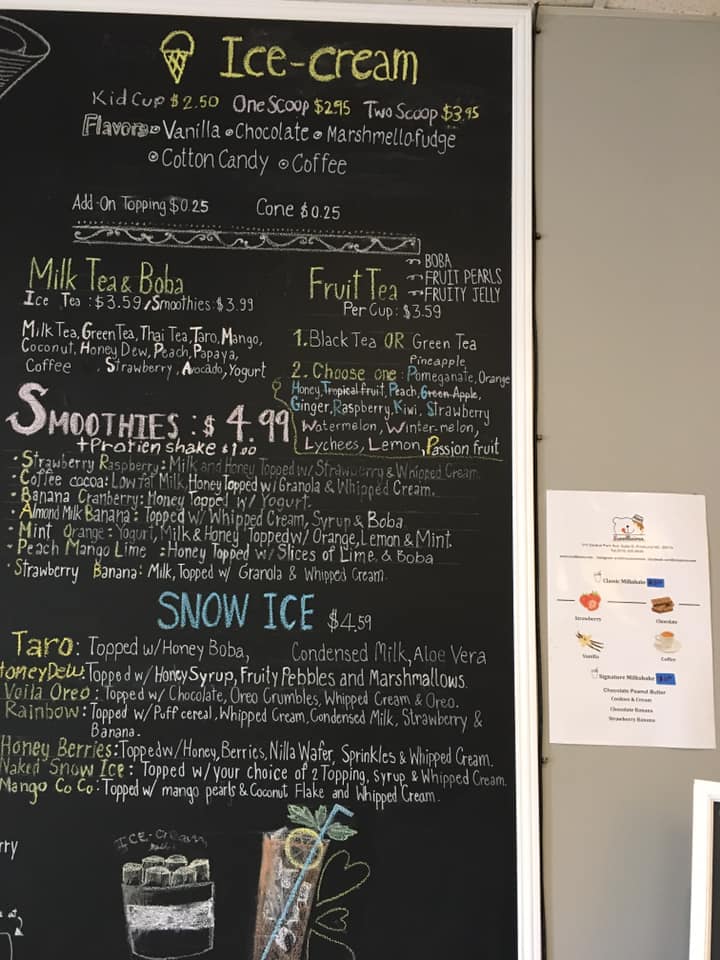 Ice-cream
Kid Cup $2.50 One Scoop $2.95 Two Scoop $3.95
Flavors Vanilla Chocolate Marshmello fudge
Cotton Candy Coffee
Add-On Topping $0.25 Cone $0.25
Milk Tea & Boba
Ice Tea : $3.59 / Smoothies : $3.99
Milk Tea, Green Tea, Thai Tea, Taro, Mango,
Coconut, Honey Dew, Peach, Papaya,
Coffee , Strawberry , Avocado, Yogurt
BOBA
FRUIT PEARLS
FRUITY JELLY
Fruit Tea
Per Cup : $3.59
1. Black Tea OR Green Tea
Pineapple
2. Choose one : Pomeganate, Orange
Honey, Tropical fruit, Peach, Green Apple,
Ginger, Raspberry, Kiwi, Strawberry
Watermelon, Winter-melon,
Lychees, Lemon, Passion fruit
SMOOTHIES : $4.99
+Protien shake $1.00
· Strawberry Raspberry : Milk and Honey Topped w/ Strawberry & Whipped Cream.
· Coffee cocoa : Low fat Milk, Honey Topped w/ Granola & Whipped Cream.
· Banana Cranberry : Honey Topped w/ Yogurt.
· Almond Milk Banana : Topped w/ Whipped Cream, Syrup & Boba
· Mint Orange : Yogurt, Milk & Honey Topped w/ Orange, Lemon & Mint.
· Peach Mango Lime : Honey Topped w/ Slices of Lime. & Boba
· Strawberry Banana : Milk, Topped w/ Granola & Whipped Cream.
SNOW ICE $4.59
Taro : Topped w/ Honey Boba, Condensed Milk, Aloe Vera
Honey Dew : Topped w/ Honey Syrup, Fruity Pebbles and Marshmallows.
Voila Oreo : Topped w/ Chocolate, Oreo Crumbles, Whipped Cream & Oreo.
Rainbow : Topped w/ Puff cereal, Whipped Cream, Condensed Milk, Strawberry &
Banana.
Honey Berries : Topped w/ Honey, Berries, Nilla Wafer, Sprinkles & Whipped Cream.
Naked Snow Ice : Topped w/ your choice of 2 Topping, syrup & Whipped Cream.
Mango Co Co : Topped w/ mango pearls & Coconut Flake and Whipped Cream.
ICE-Cream
Classic Milkshake
Strawberry Chocolate
Vanilla Coffee
Signature Milkshake
Chocolate Peanut Butter
Cookies & Cream
Chocolate Banana
Strawberry Banana